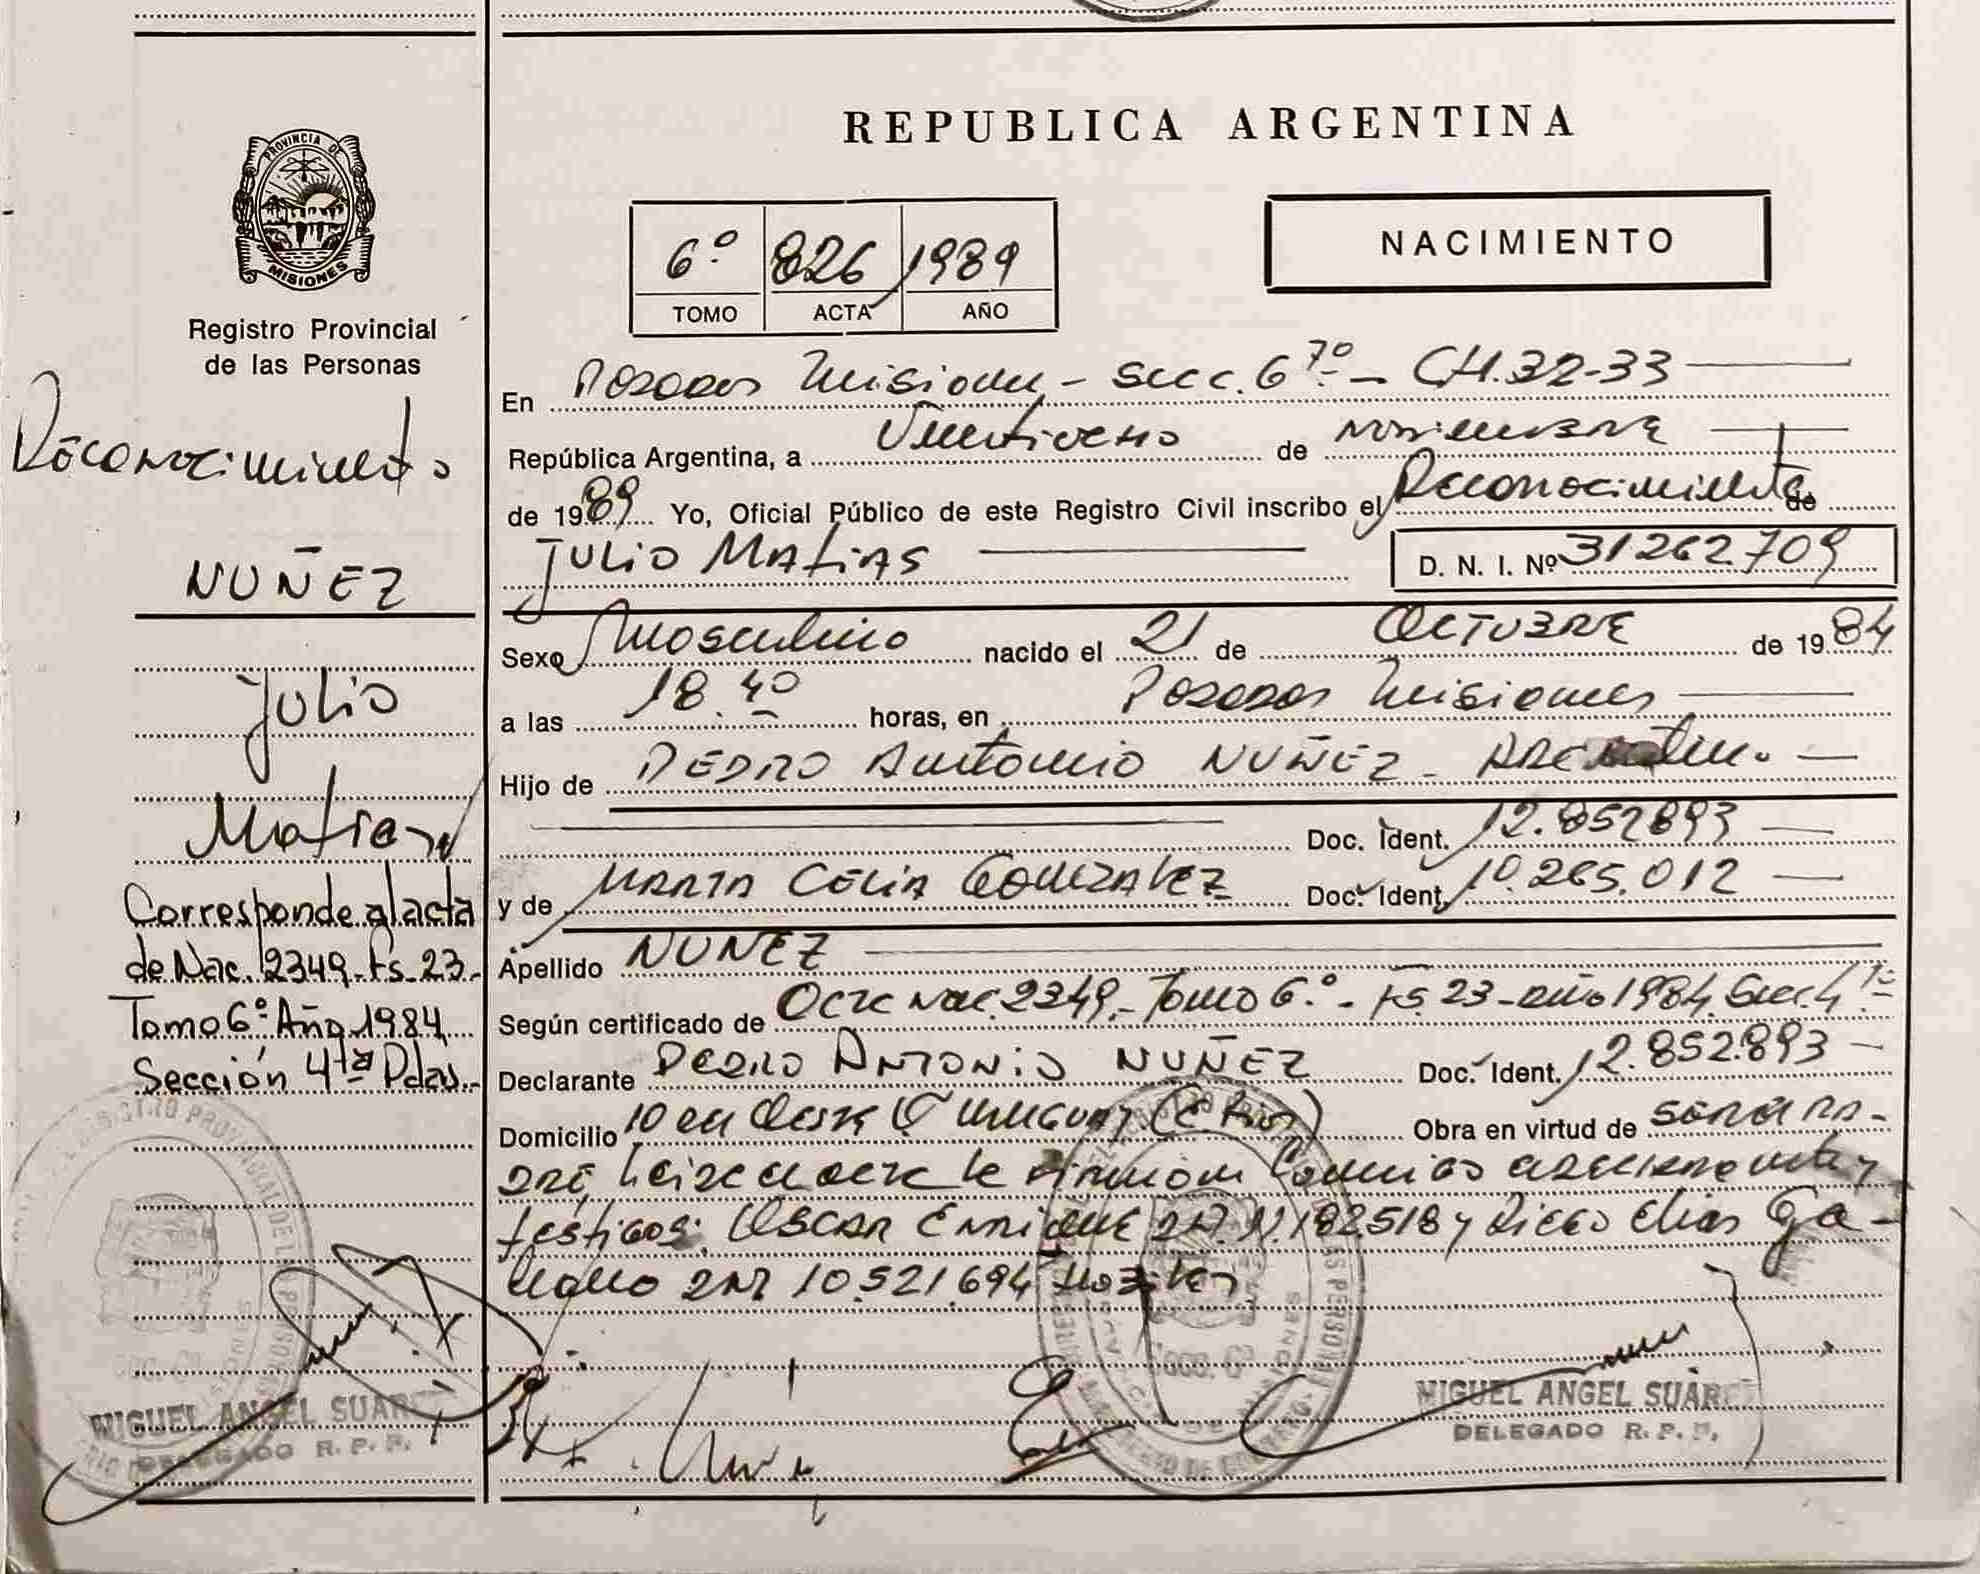 PROVINCIA DE
MISIONES
Registro Provincial
de las Personas
Reconocimiento
NUÑEZ
Julio
Matias
Corresponde al acta
de Nac. 2349 - Fs. 23.-
Tomo 6º Año 1984
Sección 4ta Pdas.-
MIGUEL ANGEL SUAREZ
DELEGADO R. P. P.
REPUBLICA ARGENTINA
6º 826 1989
TOMO ACTA AÑO
NACIMIENTO
En Posadas Misiones - Secc. 6 7º - CH. 32-33
República Argentina, a Veintiocho de noviembre
de 1989 Yo, Oficial Público de este Registro Civil inscribo el Reconocimiento de
Julio Matias D. N. I. Nº 31262709
Sexo Masculino nacido el 21 de Octubre de 1984
a las 18.40 horas, en Posadas Misiones
Hijo de Pedro Antonio NUÑEZ - Argentino
Doc. Ident. 12.852893
y de Marta Celia Gonzalez Doc. Ident. 10.265.012
Apellido NUÑEZ
Según certificado de Acta Nac. 2349.- Tomo 6º.- Fs. 23 - año 1984 Secc. 4ta
Declarante Pedro Antonio NUÑEZ Doc. Ident. 12.852.893
Domicilio 10 del Oeste C Uruguay (E. Rios) Obra en virtud de ser
Leida el acta la firman conmigo
testigos: Oscar Enrique 7.182518 y Diego Elias Ga-
DNI 10.521.694
MIGUEL ANGEL SUAREZ
DELEGADO R. P. P.